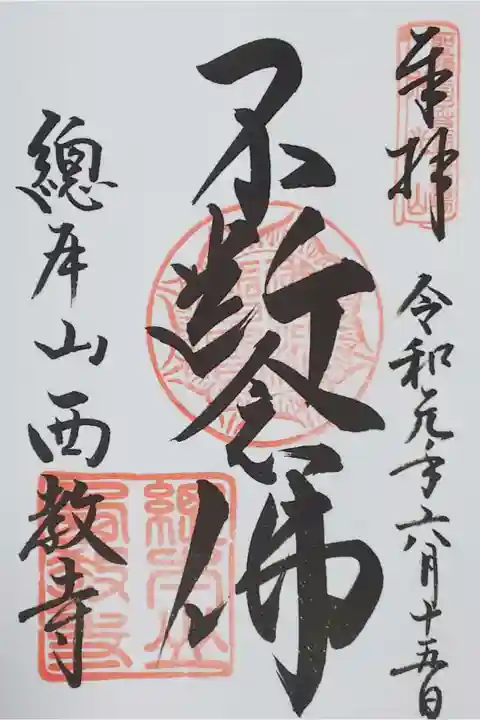 奉拝
令和元年六月十五日
不断念佛
總本山西教寺